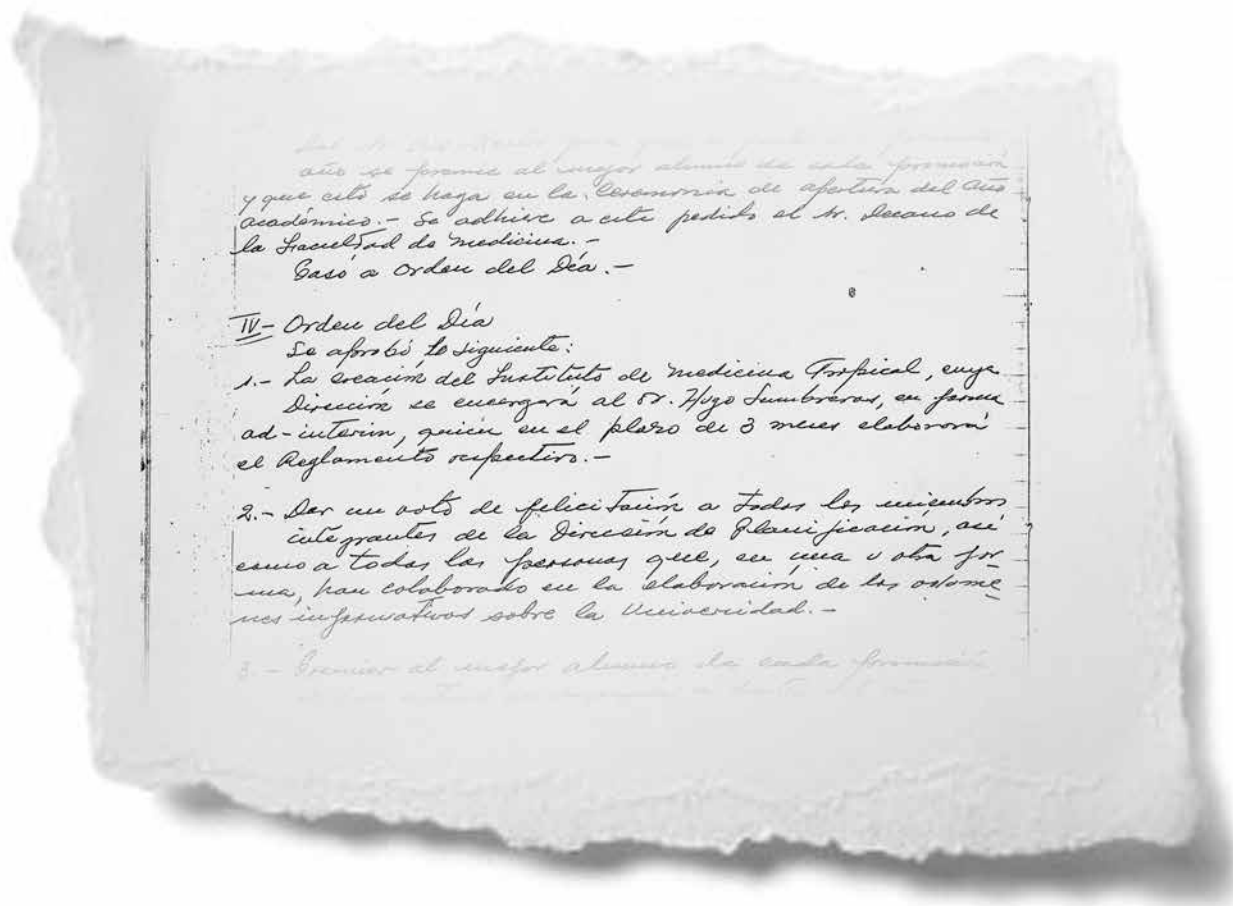 año se premie al mejor alumno de cada promoción
y que esto se haga en la Ceremonia de apertura del Año
académico.- Se adhiere a este pedido el Sr. Decano de
la Facultad de Medicina.-
Pasó a Orden del Día.-
IV- Orden del Día
Se aprobó lo siguiente:
1.- La creación del Instituto de Medicina Tropical, cuya
Dirección se encargará al Dr. Hugo Lumbreras, en forma
ad-interim, quien en el plazo de 3 meses elaborará
el Reglamento respectivo.-
2.- Dar un voto de felicitación a todos los miembros
integrantes de la Dirección de Planificación, así
como a todas las personas que, en una u otra for-
ma, han colaborado en la elaboración de los volúme-
nes informativos sobre la Universidad.-
3.- Premiar al mejor alumno de cada promoción